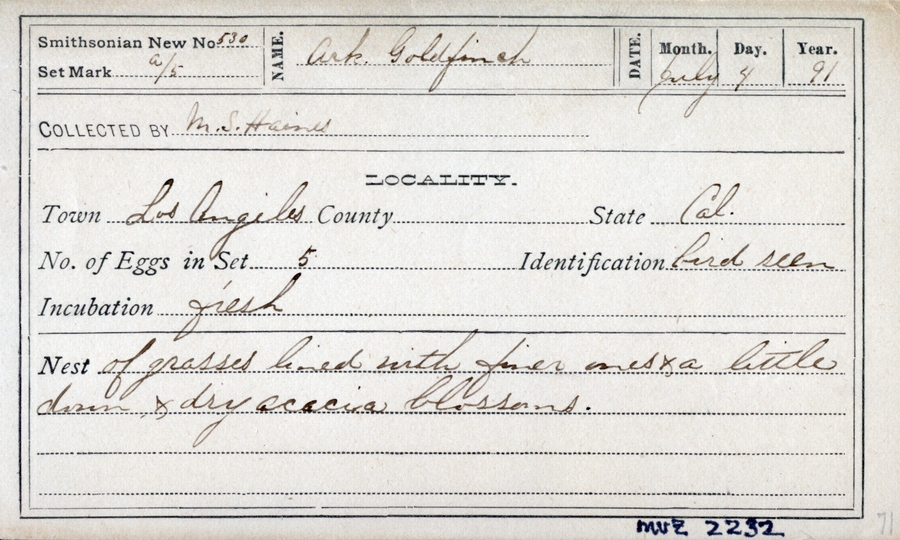 Smithsonian New No 530 NAME. Ark. Goldfinch DATE. Month. Day. Year.
Set Mark a/5 July 4 91
COLLECTED BY M. S. Haines
LOCALITY.
Town Los Angeles County State Cal.
No. of Eggs in Set 5 Identification bird seen
Incubation fresh
Nest of grasses lined with finer ones & a little
down, & dry acacia blossoms.
MVZ 2232
71